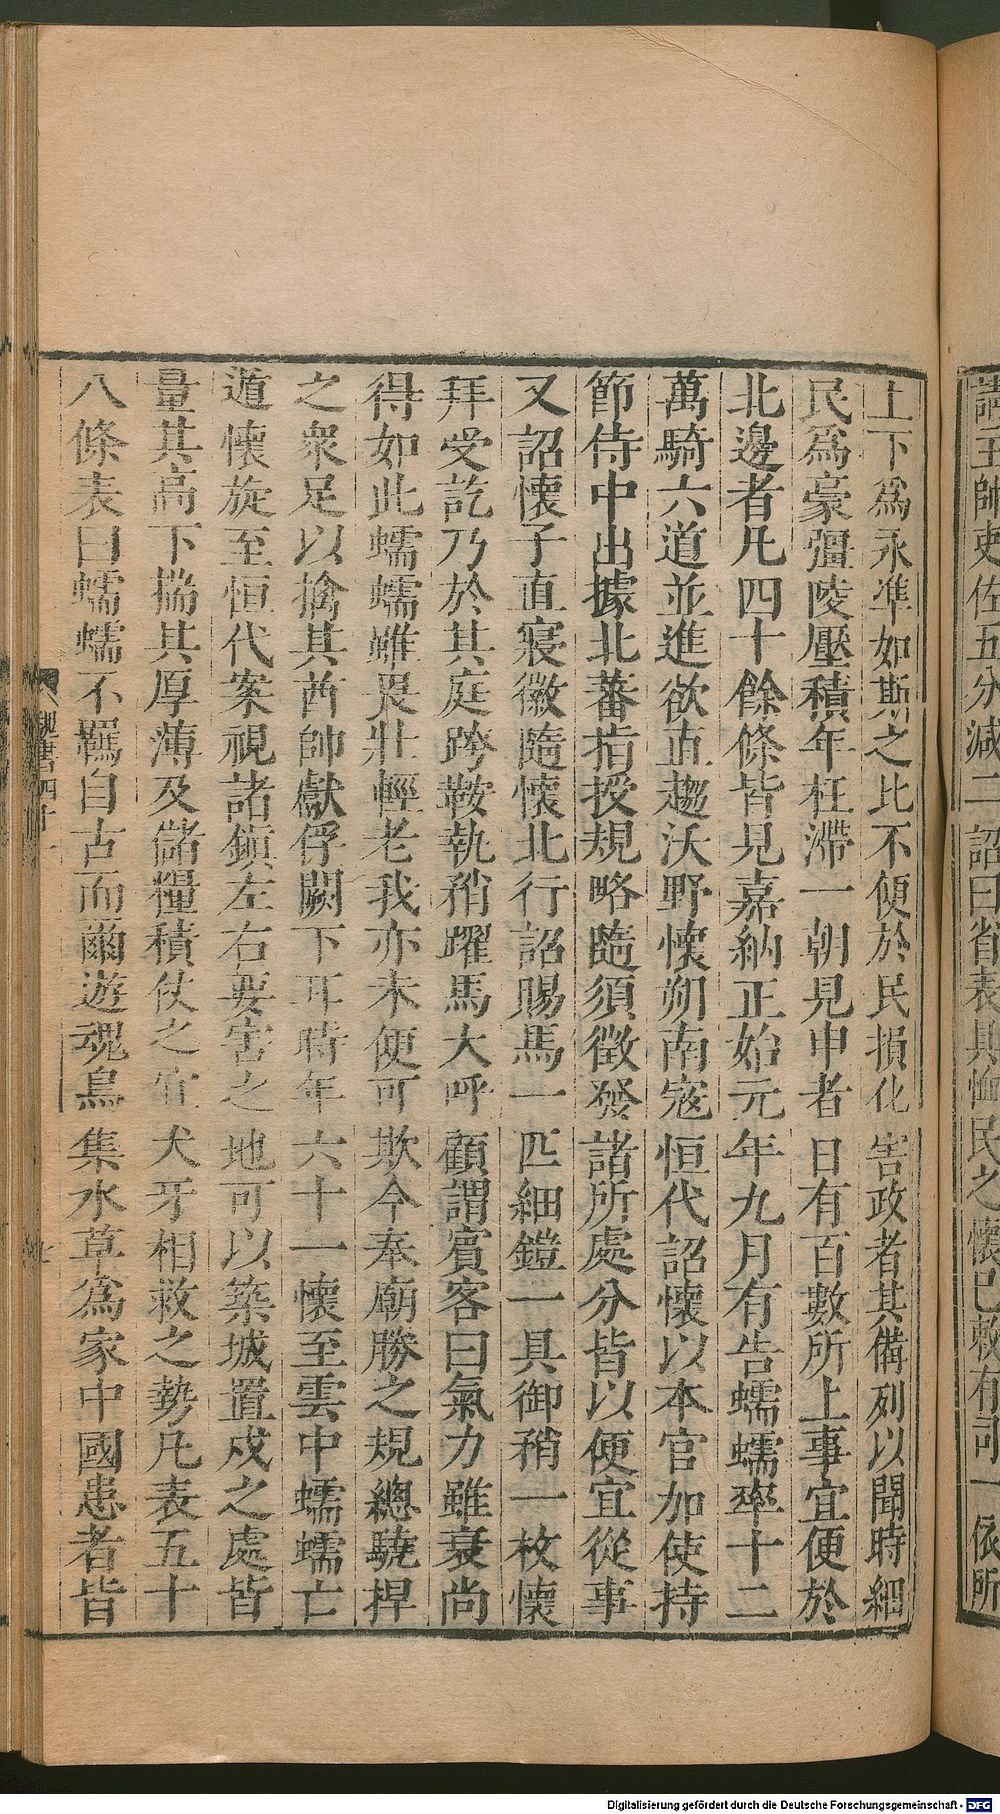 請王帥吏佐五分減二詔曰省表具恤民之懷已敕有司一依所
上下爲永準如斯之比不便於民損化害政者其備列以聞時細
民爲豪彊陵壓積年枉滯一朝見申者日有百數所上事宜便於
北邊者凡四十餘條皆見嘉納正始元年九月有告蠕蠕率十二
萬騎六道並進欲直趨沃野懷朔南寇恒代詔懷以本官加使持
節侍中出據北蕃指授規略隨須徵發諸所處分皆以便宜從事
又詔懷子直寢徽隨懷北行詔賜馬一匹細鎧一具御矟一枚懷
拜受訖乃於其庭跨鞍執矟躍馬大呼顧謂賓客曰氣力雖衰尚
得如此蠕蠕雖畏壯輕老我亦未便可欺今奉廟勝之規總驍捍
之衆足以擒其酋帥獻俘闕下耳時年六十一懷至雲中蠕蠕亡
遁懷旋至恒代案視諸鎭左右要害之地可以築城置戍之處皆
量其高下揣其厚薄及儲糧積仗之宜犬牙相救之勢凡表五十
八條表曰蠕蠕不羈自古而爾遊魂鳥集水草爲家中國患者皆
魏書四十一
七
Digitalisierung gefördert durch die Deutsche Forschungsgemeinschaft - DFG